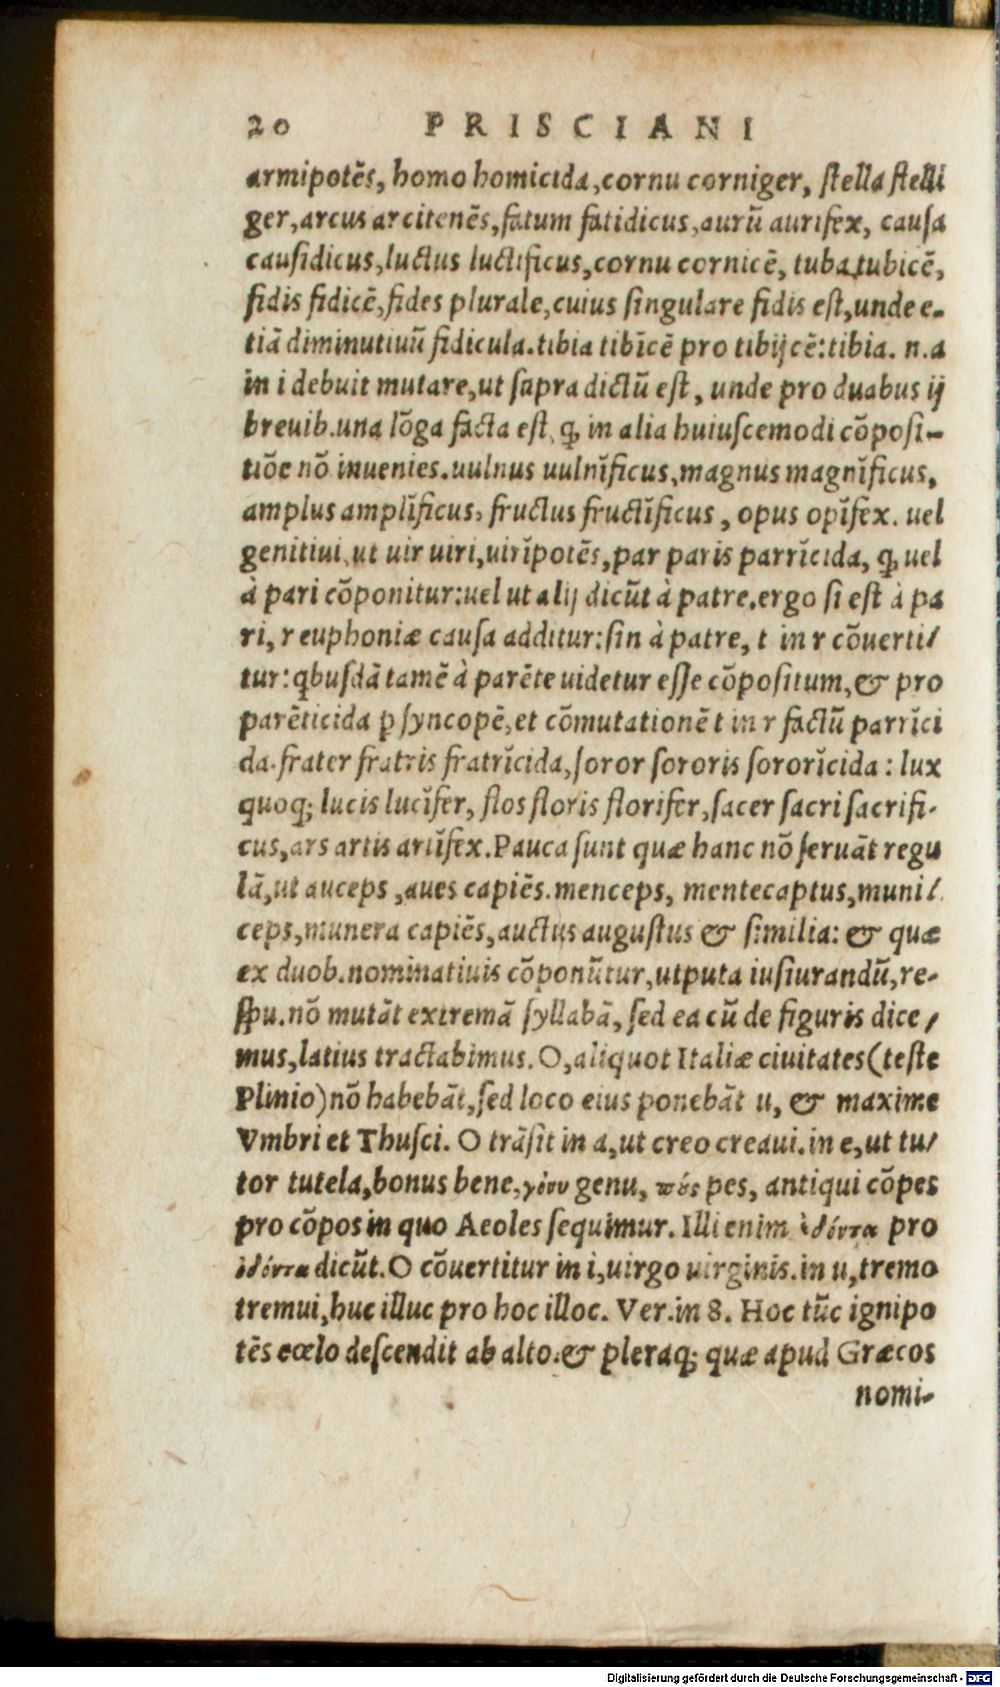 20 PRISCIANI
armipotẽs, homo homicida, cornu corniger, ſtella ſtelli
ger, arcus arcitenẽs, fatum fatidicus, aurũ aurifex, cauſa
cauſidicus, luctus luctificus, cornu cornicẽ, tuba tubicẽ,
fidis fidicẽ, fides plurale, cuius ſingulare fidis eſt, unde e-
tiã diminutiuũ fidicula. tibia tibĩcẽ pro tibijcẽ: tibia. n. a
in i debuit mutare, ut ſupra dictũ eſt, unde pro duabus ij
breuib. una lõga facta eſt, ꝙ in alia huiuſcemodi cõpoſi-
tiõe nõ inuenies. uulnus uulnĭficus, magnus magnĭficus,
amplus amplĭficus, fructus fructĭficus, opus opĭfex. uel
genitiui, ut uir uiri, uirĭpotẽs, par paris parrĭcida, ꝙ uel
à pari cõponitur: uel ut alij dicũt à patre. ergo ſi eſt à pa
ri, r euphoniæ cauſa additur: ſin à patre, t in r cõuerti/
tur: qbuſdã tamẽ à parẽte uidetur eſſe cõpoſitum, & pro
parẽticida p ſyncopẽ, et cõmutationẽ t in r factũ parrĭci
da. frater fratris fratrĭcida, ſoror ſororis ſororĭcida: lux
quoq; lucis lucĭfer, flos floris florifer, ſacer ſacri ſacrifi-
cus, ars artis artĭfex. Pauca ſunt quæ hanc nõ ſeruãt regu
lã, ut auceps, aues capiẽs. menceps, mentecaptus, muni/
ceps, munera capiẽs, auctus auguſtus & ſimilia: & quæ
ex duob. nominatiuis cõponũtur, utputa iuſiurandũ, re-
ſpu. nõ mutãt extremã ſyllabã, ſed ea cũ de figuris dice/
mus, latius tractabimus. O, aliquot Italiæ ciuitates (teſte
Plinio) nõ habebãt, ſed loco eius ponebãt u, & maxime
Vmbri et Thuſci. O trãſit in a, ut creo creaui. in e, ut tu/
tor tutela, bonus bene, γόνυ genu, πός pes, antiqui cõpes
pro cõpos in quo Aeoles ſequimur. Illi enim ἐδόντα pro
ὀδόντα dicũt. O cõuertitur in i, uirgo uirginis. in u, tremo
tremui, huc illuc pro hoc illoc. Ver. in 8. Hoc tũc ignipo
tẽs cœlo deſcendit ab alto. & pleraq; quæ apud Græcos
nomi-
Digitalisierung gefördert durch die Deutsche Forschungsgemeinschaft - DFG